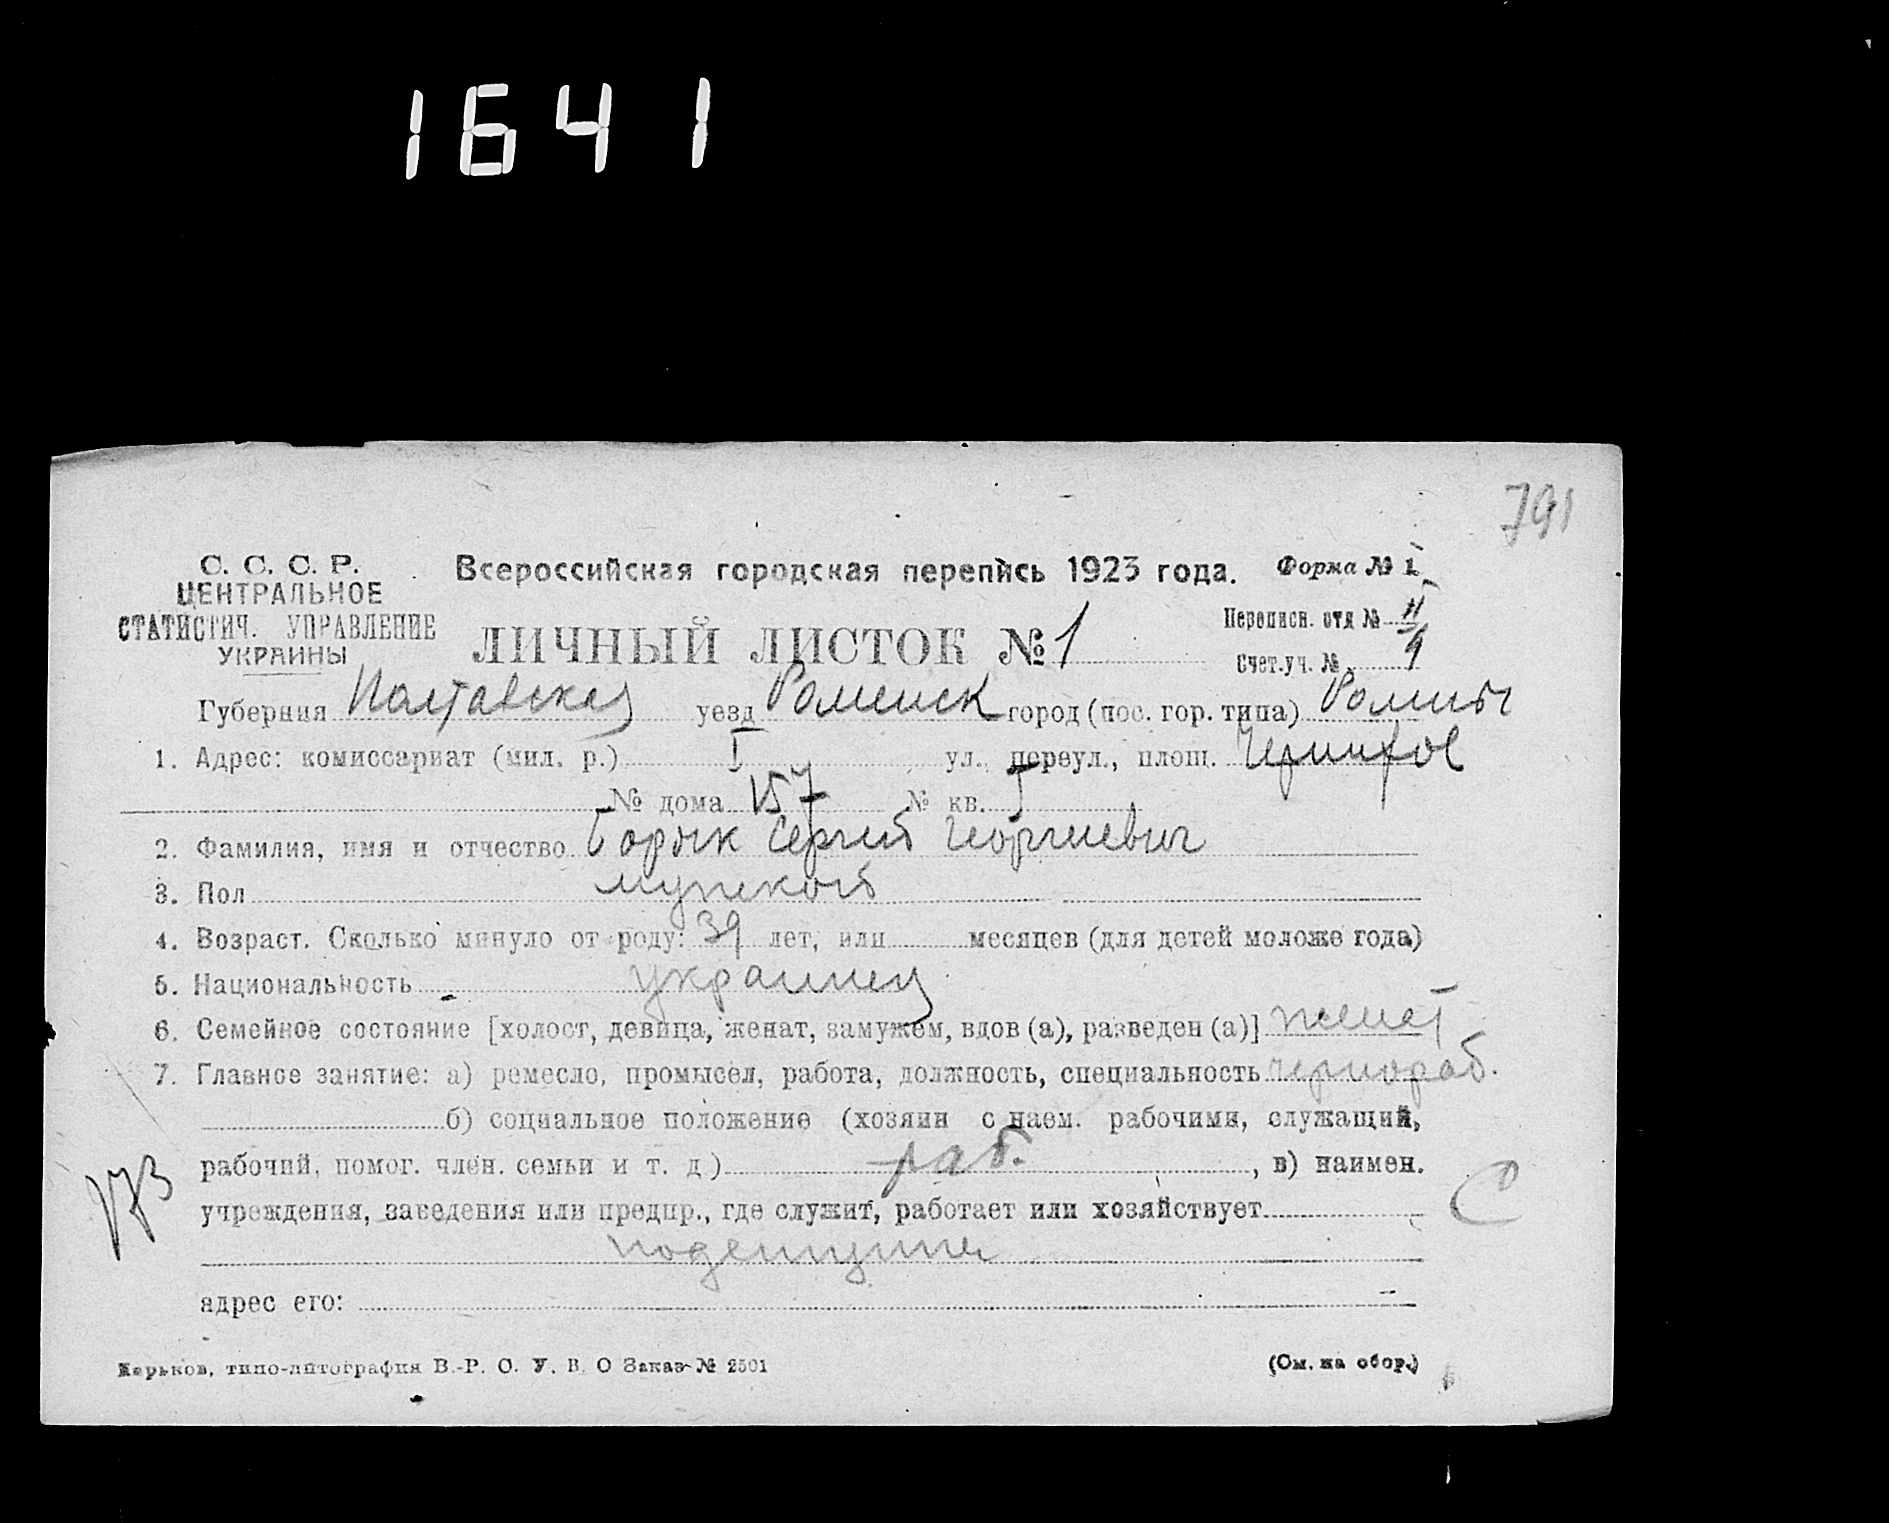 1641
791
С. С. С. Р.
ЦЕНТРАЛЬНОЕ
СТАТИСТИЧ. УПРАВЛЕНИЕ
УКРАИНЫ
Всероссийская городская перепись 1923 года.
Форма № 1
ЛИЧНЫЙ ЛИСТОК № 1
Переписн. отд № II
Счет.уч. № 9
Губерния Полтавская уезд Роменск город (пос. гор. типа) Ромны
1. Адрес: комиссариат (мил. р.) I ул., переул., площ. Чернигов
№ дома 157 № кв.
2. Фамилия, имя и отчество Сергий Георгиевич
3. Пол мужской
4. Возраст. Сколько минуло от роду: 39 лет, или месяцев (для детей моложе года)
5. Национальность украинец
6. Семейное состояние [холост, девица, женат, замужем, вдов (а), разведен (а)] женат
7. Главное занятие: а) ремесло, промысел, работа, должность, специальность чернораб.
б) социальное положение (хозяин с наем. рабочими, служащий,
рабочий, помог. член. семьи и т. д) раб. , в) наимен.
учреждения, заведения или предпр., где служит, работает или хозяйствует
адрес его:
Харьков, типо-литография В.-Р. С. У. В. О Заказ № 2501
(См. на обор.)